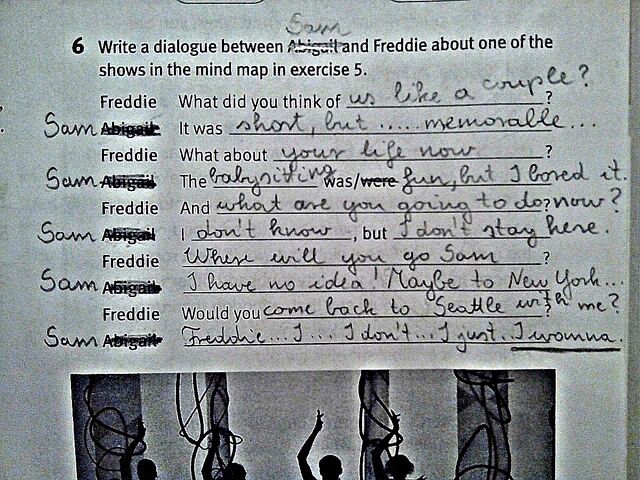 Sam
6 Write a dialogue between Abigail and Freddie about one of the
shows in the mind map in exercise 5.
Freddie What did you think of us like a couple? ?
Sam Abigail It was short, but ..... memorable...
Freddie What about your life now ?
Sam Abigail The babysitting was/were fun, but I bored it.
Freddie And what are you going to do now? ?
Sam Abigail I don't know, but I don't stay here.
Freddie Where will you go Sam ?
Sam Abigail I have no idea! Maybe to New York...
Freddie Would you come back to Seattle with me? ?
Sam Abigail Freddie... I... I don't... I just. I wanna.